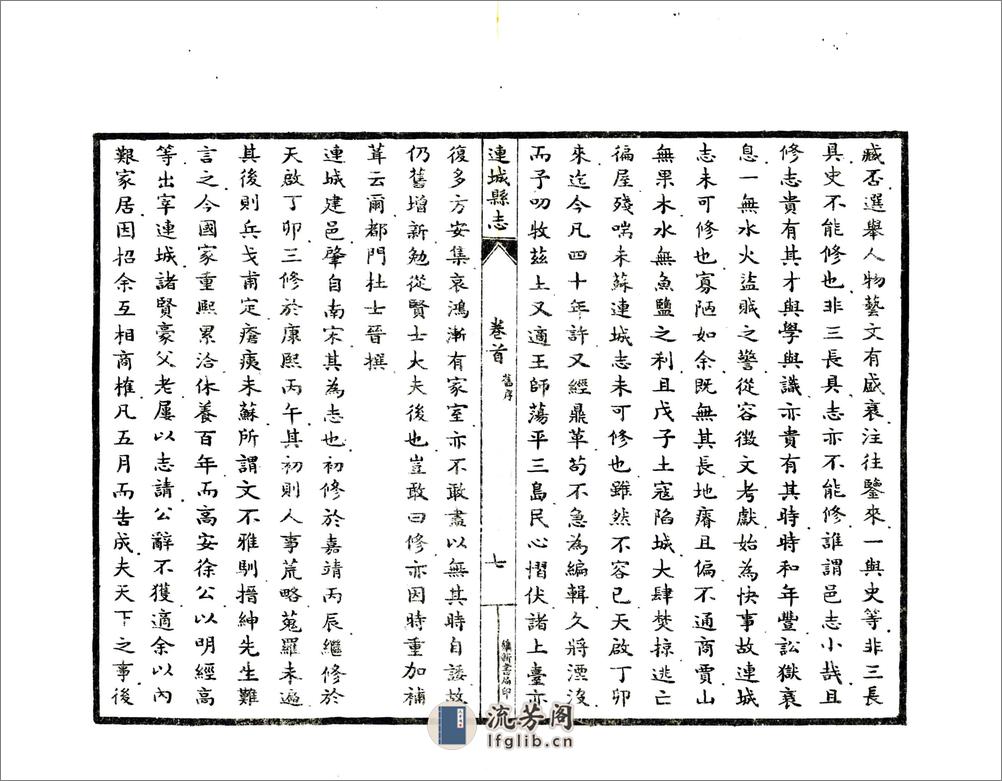 臧否選舉人物藝文有盛衰注往鑒來一與史等非三長
具史不能修也非三長具志亦不能修誰謂邑志小哉且
修志貴有其才與學與識亦貴有其時時和年豐訟獄衰
息一無水火盜賊之警從容徵文考獻始為快事故連城
志未可修也寡陋如余既無其長地瘠且偏不通商賈山
無果木水無魚鹽之利且戊子土寇陷城大肆焚掠逃亡
徧屋殘喘未蘇連城志未可修也雖然不容已天啟丁卯
來迄今凡四十年許又經鼎革苟不急為編輯久將湮沒
而予叨牧茲上又適王師蕩平三島民心慴伏諸上臺亦
連城縣志
卷首
舊序
七
維新書局印
復多方安集哀鴻漸有家室亦不敢盡以無其時自諉故
仍舊增新勉從賢士大夫後也豈敢曰修亦因時重加補
葺云爾都門杜士晉撰
連城建邑肇自南宋其為志也初修於嘉靖丙辰繼修於
天啟丁卯三修於康熙丙午其初則人事荒略蒐羅未遍
其後則兵戈甫定瘡痍未蘇所謂文不雅馴搢紳先生難
言之今國家重熙累洽休養百年而高安徐公以明經高
等出宰連城諸賢豪父老屢以志請公辭不獲適余以內
艱家居因招余互相商榷凡五月而告成夫天下之事後
流芳阁
lfglib.cn